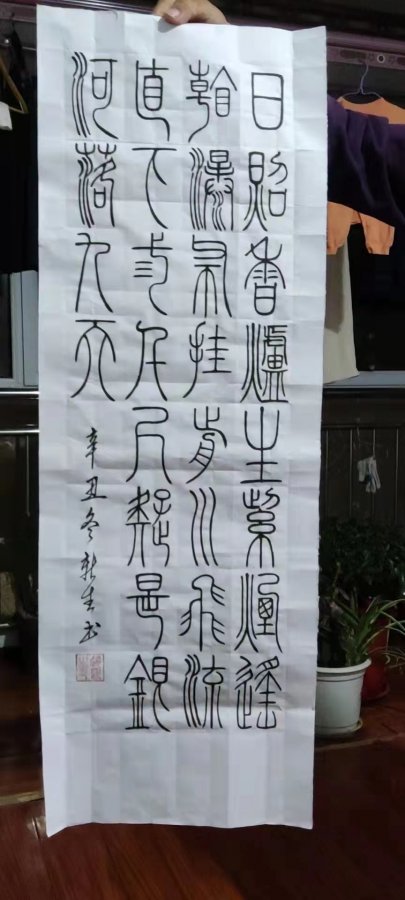 日照香爐生紫煙遙
看瀑布挂前川飛流
直下三千尺疑是銀
河落九天
辛丑冬新生书